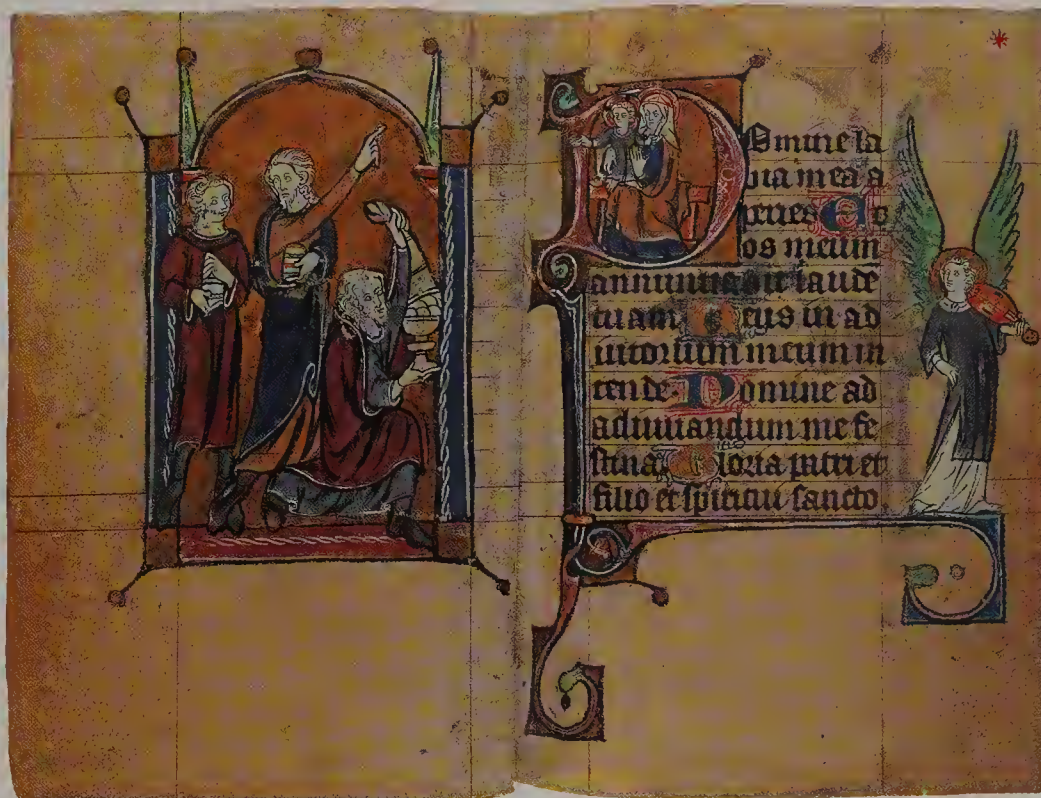 Domine la
bia mea a
peries Et
os meum
annuntiabit laude
tuam Deus in ad
iutorium meum in
tende Domine ad
adiuuandum me fe
stina Gloria patri et
filio et spiritui sancto